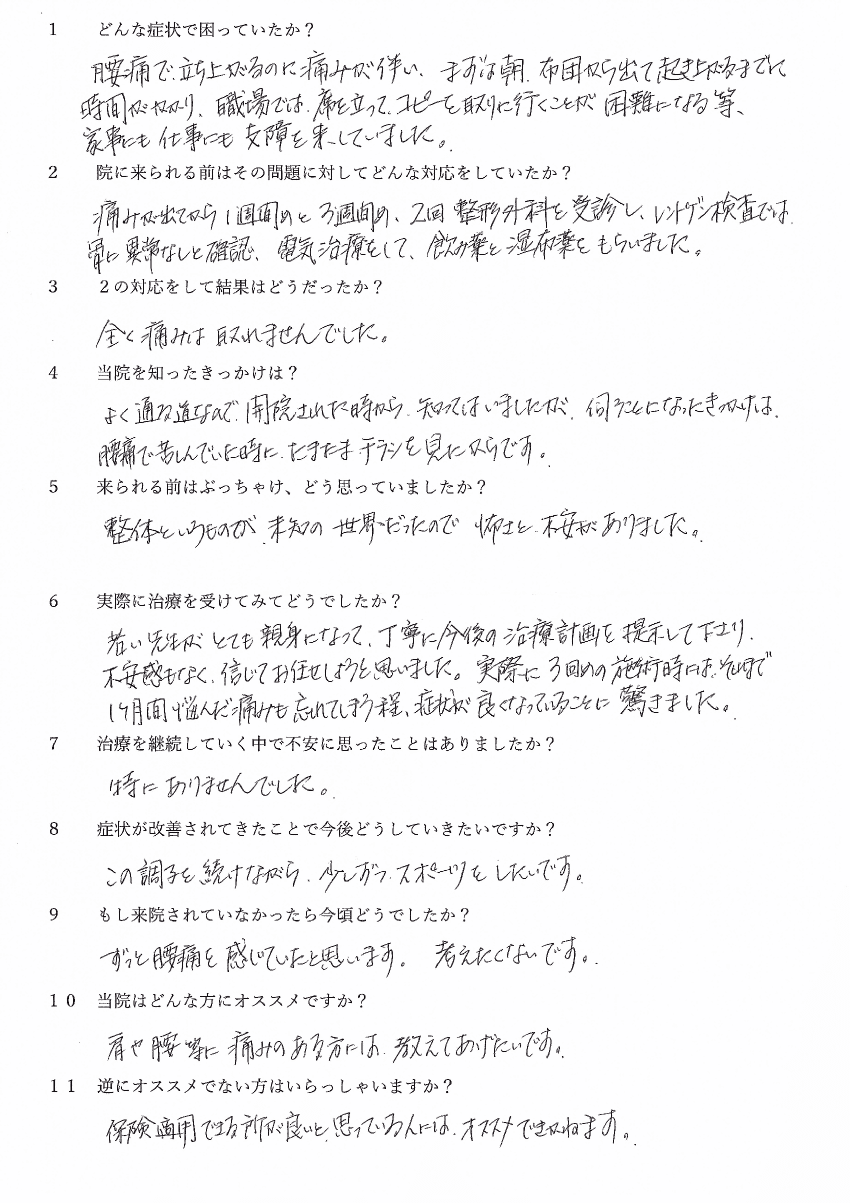 1 どんな症状で困っていたか？
腰痛で立ち上がるのに痛みが伴い、まずは朝、布団から出て起き上がるまでに
時間がかかり、職場では、席を立って、コピーを取りに行くことが困難になる等、
家事にも仕事にも支障を来していました。
2 院に来られる前はその問題に対してどんな対応をしていたか？
痛みが出てから1週間めと3週間め、2回整形外科を受診し、レントゲン検査では、
骨に異常なしと確認、電気治療をして、飲み薬と湿布薬をもらいました。
3 2の対応をして結果はどうだったか？
全く痛みは取れませんでした。
4 当院を知ったきっかけは？
よく通る道なので、開院された時から、知ってはいましたが、伺うことになったきっかけは、
腰痛で苦しんでいた時に、たまたまチラシを見たからです。
5 来られる前はぶっちゃけ、どう思っていましたか？
整体というものが、未知の世界だったので怖さと、不安がありました。
6 実際に治療を受けてみてどうでしたか？
若い先生がとても親身になって、丁寧に今後の治療計画を提示して下さり、
不安感もなく、信じてお任せしようと思いました。実際に3回めの施術時には、それまで
1ヶ月間悩んだ痛みも忘れてしまう程、症状が良くなっていることに驚きました。
7 治療を継続していく中で不安に思ったことはありましたか？
特にありませんでした。
8 症状が改善されてきたことで今後どうしていきたいですか？
この調子を続けながら、少しずつスポーツをしたいです。
9 もし来院されていなかったら今頃どうでしたか？
ずっと腰痛を感じていたと思います。 考えたくないです。
10 当院はどんな方にオススメですか？
肩や腰等に痛みのある方には、教えてあげたいです。
11 逆にオススメでない方はいらっしゃいますか？
保険適用できる所が良いと思っている人には、オススメできかねます。